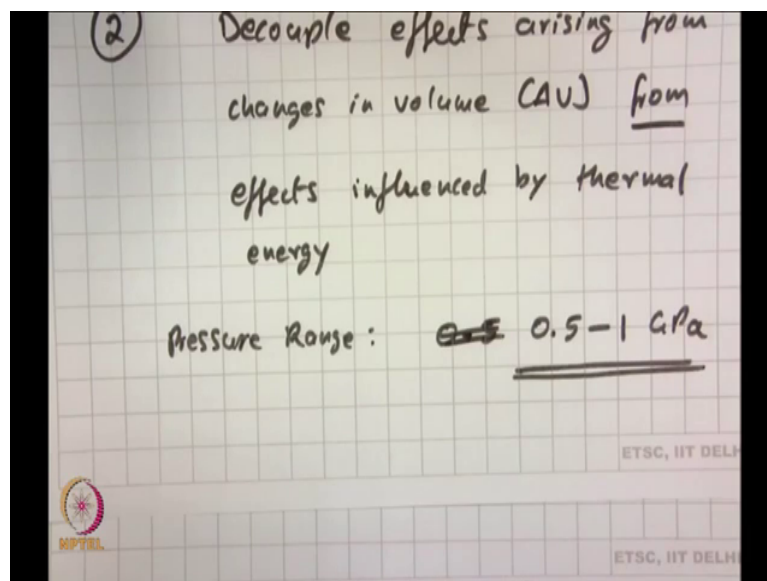 ② Decouple effects arising from
changes in volume (ΔV) from
effects influenced by thermal
energy
Pressure Range: 0.5-1 GPa
ETSC, IIT DELH
NPTEL
ETSC, IIT DELHI